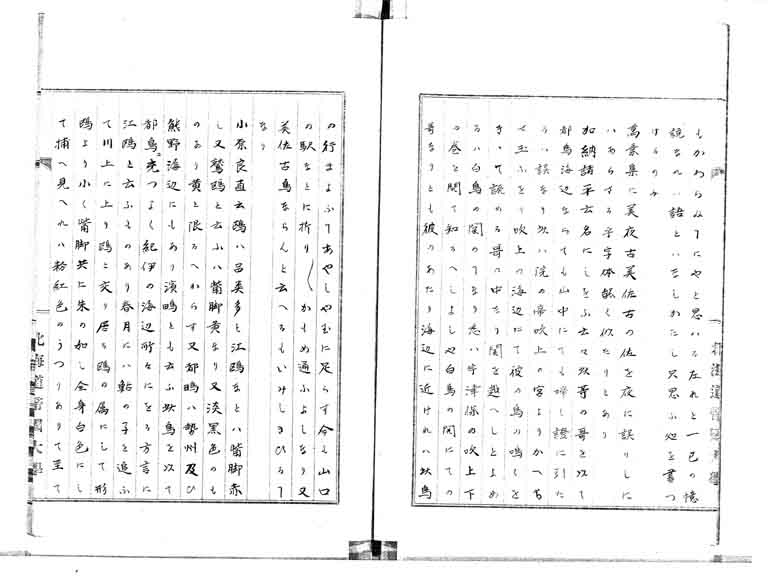 もかわらみてにやと思いる左れと一己の憶
説なれハ語といたしかたし只思ふ処を書つ
けるのみ
萬葉集に美夜古美佐古の佐を夜に誤りしに
いあらする字字体能く似たりとあり
加納諸平云名にしをふ云々以哥の哥を以て
都鳥海辺ならても山中にても啼し證に引た
うハ誤なり以ハ院の帝吹上の宮よりかへら
せ玉ふをり吹上の海辺にて彼の鳥の鳴くを
きいて詠める哥に中たり関を越へしとよめ
るハ白鳥の関のてなり志ハ宇津保の吹上下
の巻を関て知るへしよしや白鳥の関にての
哥なりとも彼のあたり海辺に近けれハ以鳥
の行まよふてあやしやむに足らす今も山口
の駅なとに折り〱かもめ通ふよしなり又
美佐古鳥ならんと云へるもいみしきひろて
なり
小原良直云鴎ハ呂英多と江鴎なとハ觜脚赤
し又鷲鴎と云ふハ觜脚黄なり又淡黒色のも
のあり黄と限るへからす又都鴫ハ勢州及ひ
熊野海辺にもあり濱鴫とも云ふ以鳥を以て
都鳥に充つよく紀伊の海辺所々にをる方言に
江鴎と云ふものあり春月にハ鮎の子を追ふ
て川上に上り鴎と交り居る鴎の属にして形
鴎より小く觜脚共に朱の如し全身白色にし
て捕へ見へれハ粉紅色のうつりありて至て
北海道帝國大學